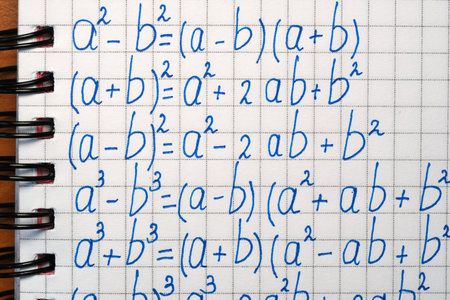 a² - b² = (a - b)(a + b)
(a + b)² = a² + 2 ab + b²
(a - b)² = a² - 2 ab + b²
a³ - b³ = (a - b)(a² + ab + b²
a³ + b³ = (a + b)(a² - ab + b²